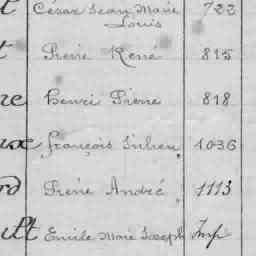 César Jean Marie 722
Louis
Pierre René 815
Henri Pierre 818
François Julien 1036
Pierre André 1113
Emile Marie Joseph